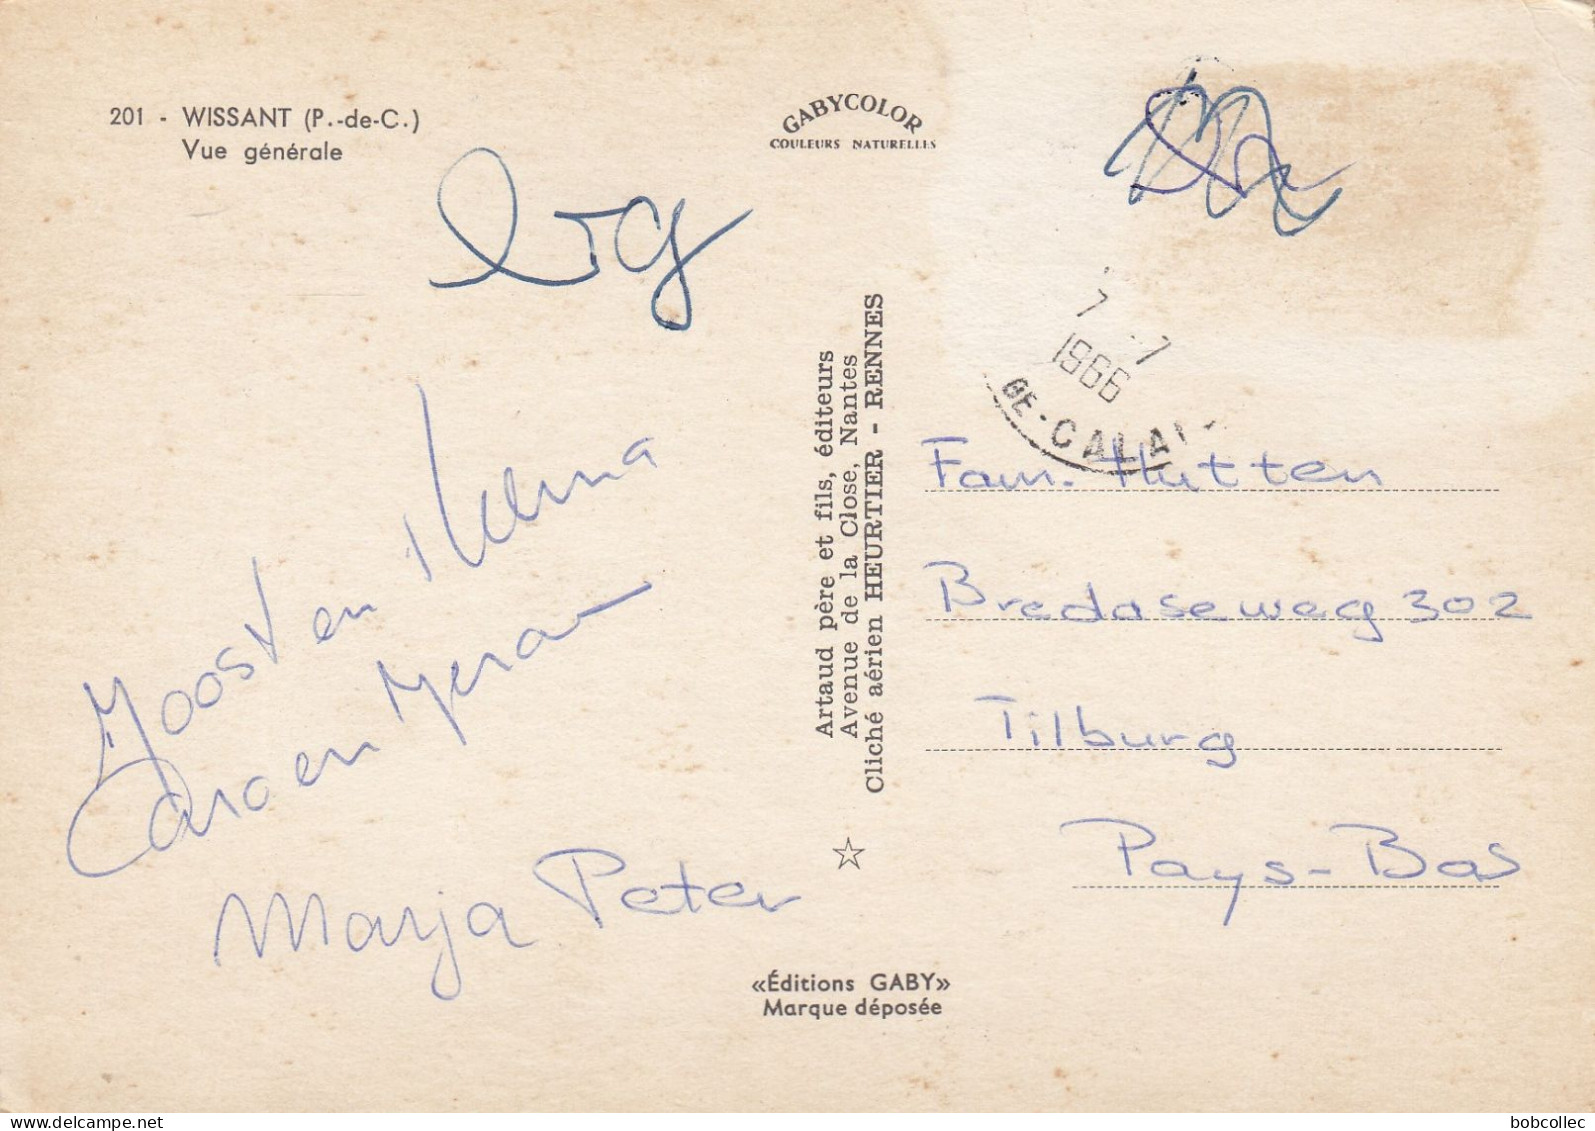 201 - WISSANT (P.-de-C.)
Vue générale
GABYCOLOR
COULEURS NATURELLES
7 -7
1966
DE-CALAI
Joost en
en
Marja Peter
Artaud père et fils, éditeurs
Avenue de la Close, Nantes
Cliché aérien HEURTIER - RENNES
Fam. Hutten
Bredaseweg 302
Tilburg
Pays-Bas
«Éditions GABY»
Marque déposée
bobcollec